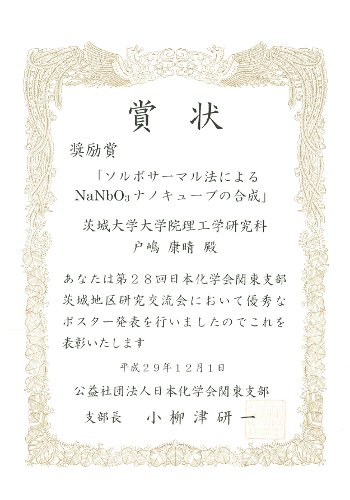 賞状
奨励賞
「ソルボサーマル法による
NaNbO₃ナノキューブの合成」
茨城大学大学院理工学研究科
戸嶋 康晴 殿
あなたは第28回日本化学会関東支部
茨城地区研究交流会において優秀な
ポスター発表を行いましたのでこれを
表彰いたします
平成29年12月1日
公益社団法人日本化学会関東支部
支部長 小柳津研一